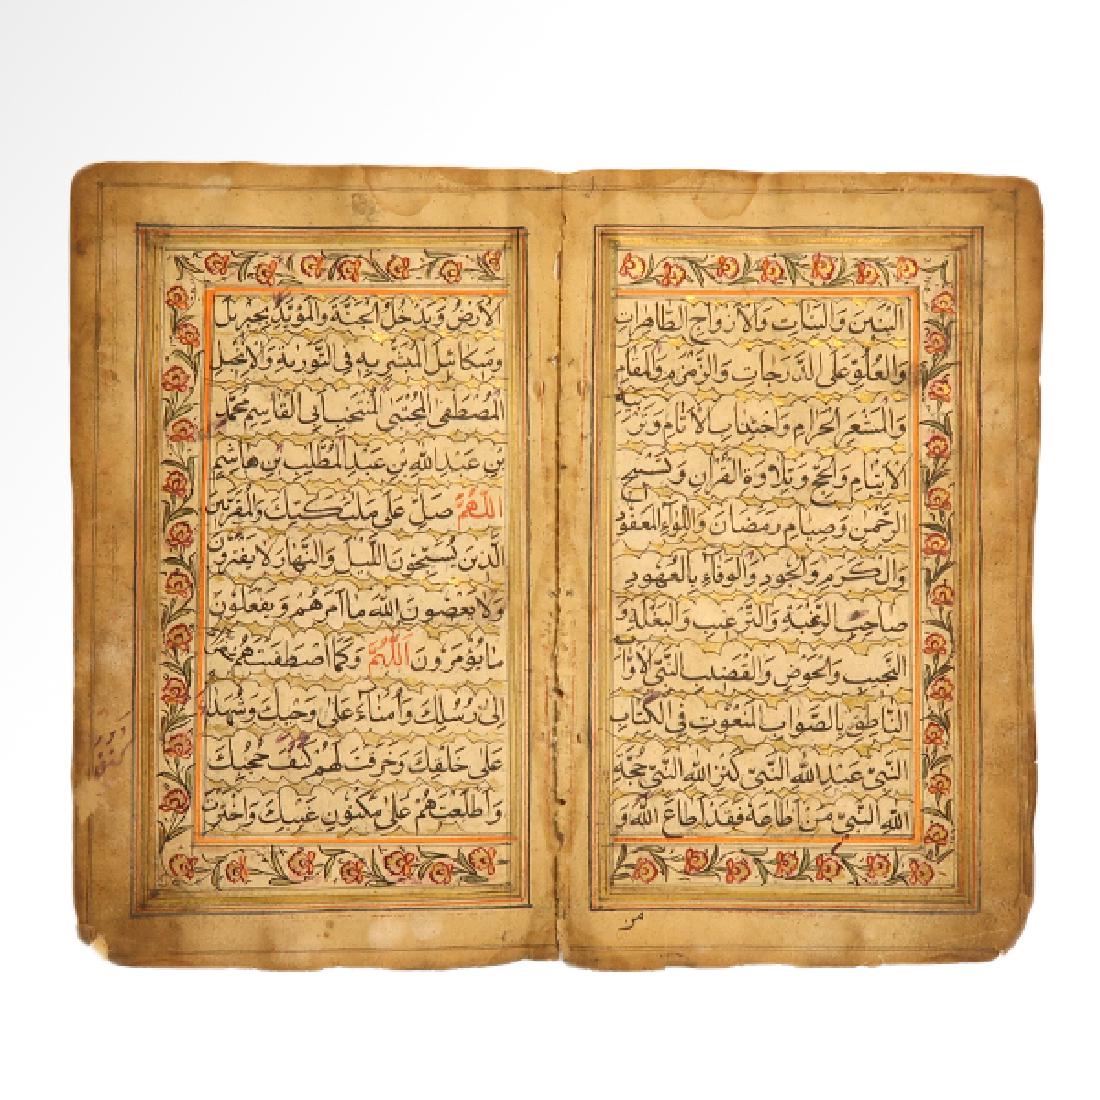 البنين والبنات والأزواج الطاهرات
والعلو على الدرجات والزمزم والمقام
والمشعر الحرام واجتناب الآثام وتربية
الايتام والحج وتلاوة القرآن وتسبيح
الرحمن وصيام رمضان واللواء المعقود
والكرم والجود والوفاء بالعهود
صاحب الرغبة والترغيب والبغلة و
النجيب والحوض والقضيب النبي الاواب
الناطق بالصواب المنعوت في الكتاب
النبي عبد الله النبي كنز الله النبي حجة
الله النبي من اطاعه فقد اطاع الله و
من
الارض ويدخل الجنة والمؤيد بجبريل
وميكائيل المبشر به في التورية والانجيل
المصطفى المجتبى المنتخب ابي القاسم محمد
بن عبد الله بن عبد المطلب بن هاشم
اللهم صل على ملئكتك والمقربين
الذين يسبحون الليل والنهار لا يفترون
ولا يعصون الله ما امرهم ويفعلون
ما يؤمرون اللهم وكما اصطفيتهم
الى رسلك وامناء على وحيك وشهداء
على خلقك وخرقت لهم كنف حجبك
واطلعتهم على مكنون غيبك واخترت